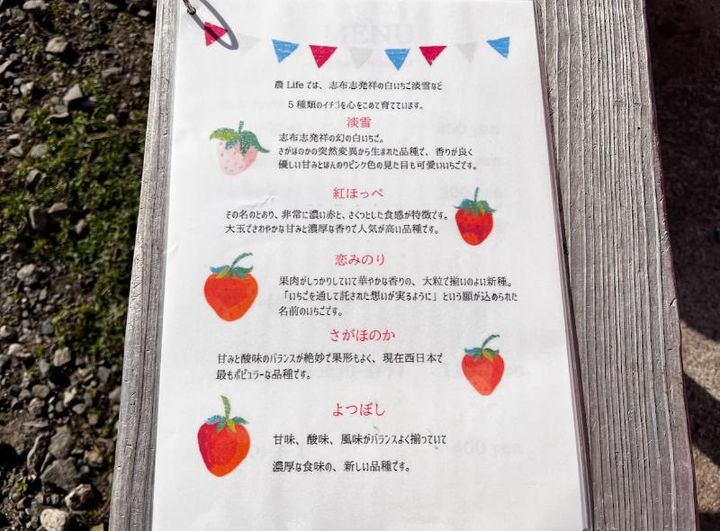 農Lifeでは、志布志発祥の白いちご淡雪など
5種類のイチゴを心をこめて育てています。
淡雪
志布志発祥の幻の白いちご。
さがほのかの突然変異から生まれた品種で、香りが良く
優しい甘みとほんのりピンク色の見た目も可愛いいちごです。
紅ほっぺ
その名のとおり、非常に濃い赤と、さくっとした食感が特徴です。
大玉でさわやかな甘みと濃厚な香りで人気が高い品種です。
恋みのり
果肉がしっかりしていて華やかな香りの、大粒で揃いのよい新種。
「いちごを通して託された想いが実るように」という願が込められた
名前のいちごです。
さがほのか
甘みと酸味のバランスが絶妙で果形もよく、現在西日本で
最もポピュラーな品種です。
よつぼし
甘味、酸味、風味がバランスよく揃っていて
濃厚な食味の、新しい品種です。